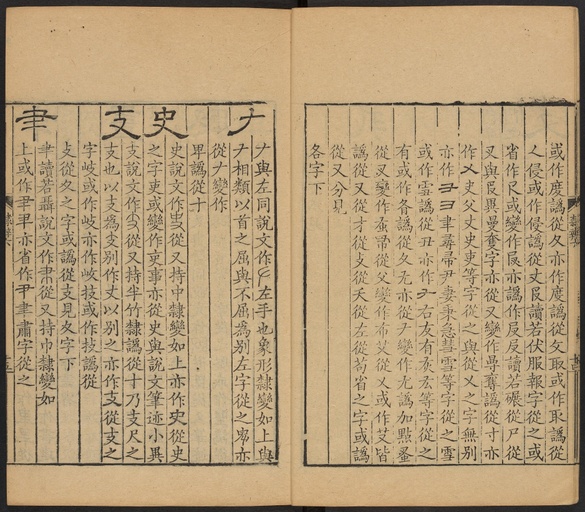 或作度譌從夂亦作度譌從攵取或作取譌從
人侵或作侵譌從丈𠬝讀若伏服報字從之或
省作𠬝或變作𠬝亦譌作𠬝𠬝讀若碾從尸從
又與𠬝異曼蔓字亦從又變作㝵奪譌從寸亦
作乂史父丈史吏等字從之與從又之字無別
亦作彐彐聿尋帚尹妻秉急彗雪等字從之雪
或作䨮譌從丑亦作ナ右友有灰厷等字從之
有或作各譌從夂尤亦從ナ變作尢譌加點蚤
從㕚變作蚤帚從父變作布艾從又或作艾皆
譌從又從才從攴從夭從左從苟省之字或譌
從又分見
各字下
ナ
ナ與左同說文作𠂇左手也象形隸變如上與
ナ相類以首之屈與不屈為別左字從之㡿亦
從ナ變作
卑譌從十
史
史說文作㕜從又持中隸變如上亦作史從史
之字吏或變作吏事亦從史與說文筆迹小異
支
支說文作𠦙從又持半竹隸譌從十乃支尺之
支也以支為支別作丈以別之亦作支從支之
字岐或作岐亦作岐技或作技譌從
攴從攵之字或譌從支見攵字下
聿
聿讀若聶說文作𦘒從又持巾隸變如
上或作𦘒𦘒亦省作肀聿肅字從之